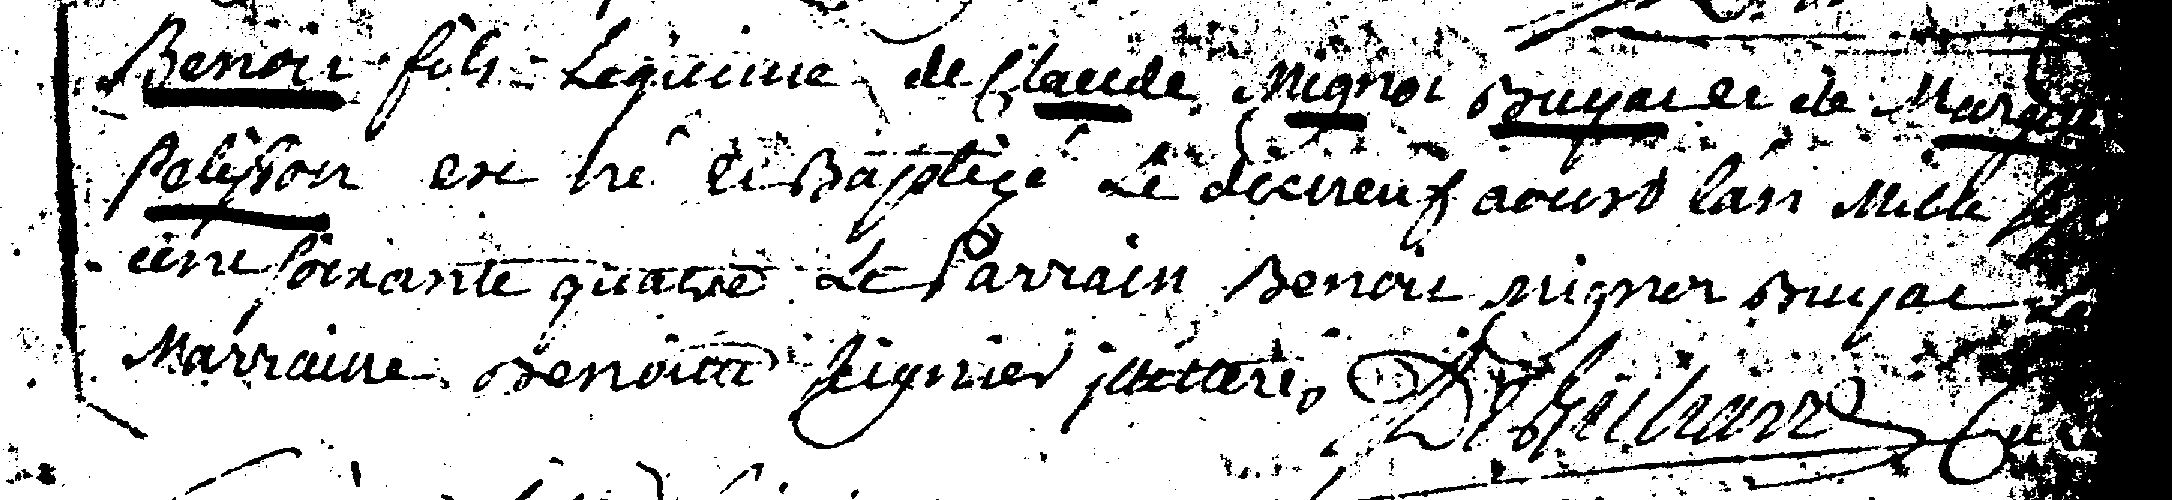 Benoit fils Legitime de Claude Mignot Buyat et de Margte
Pelisson est né et Baptizé Le dixneuf aoust lan mille sept
cent soixante quatre Le Parrain Benoit mignot Buyat La
Marraine Benoitte illitteré
Curé